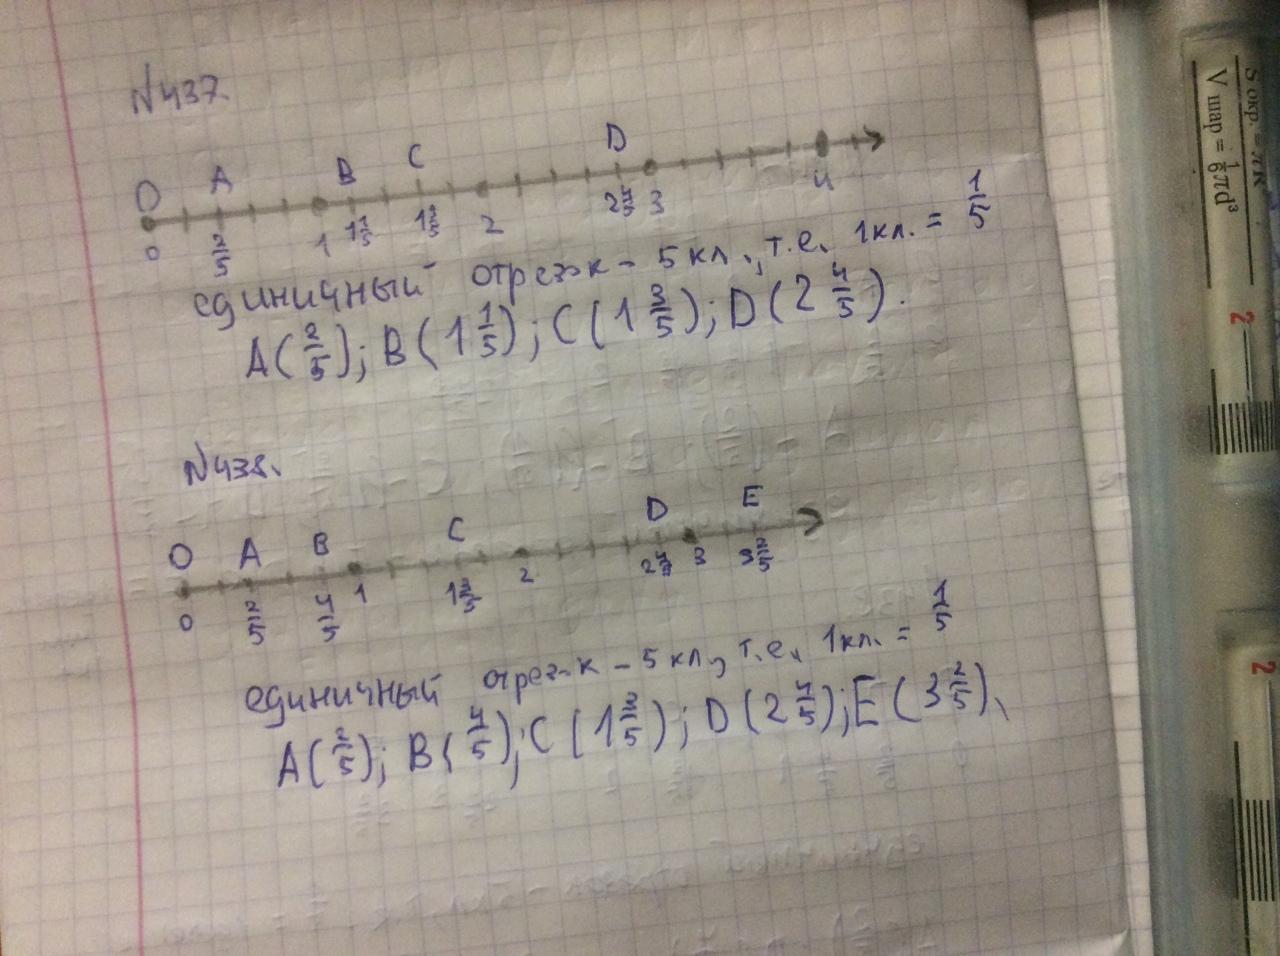 N437.
O A B C D
0 2/5 1 1 1/5 1 3/5 2 2 4/5 3 4
единичный отрезок - 5 кл., т.е. 1кл. = 1/5
A(2/5); B(1 1/5); C(1 3/5); D(2 4/5).
N438.
O A B C D E
0 2/5 4/5 1 1 3/5 2 2 4/5 3 3 2/5
единичный отрезок - 5 кл, т.е. 1кл. = 1/5
A(2/5); B(4/5); C(1 3/5); D(2 4/5); E(3 2/5).
S окр. = πR
V шар = 1/6 πd³
2
2